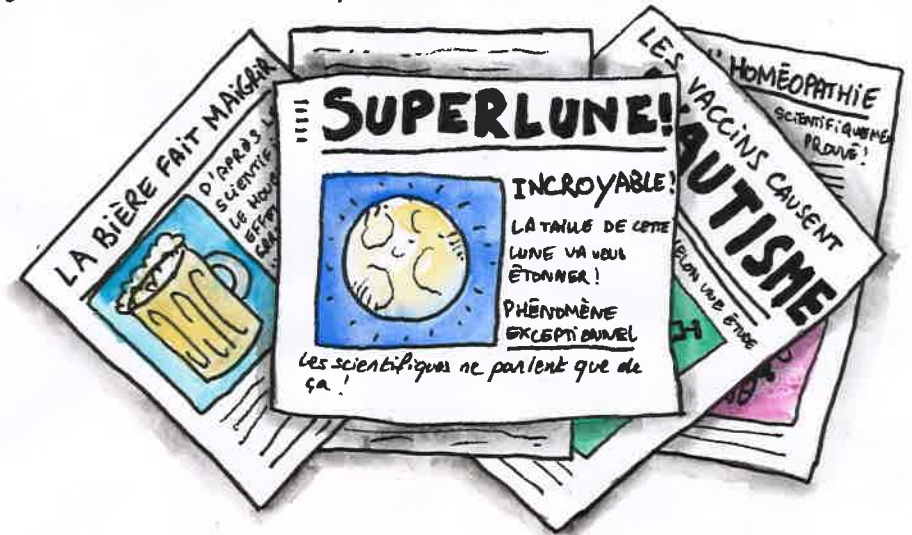 LA BIÈRE FAIT MAIGRIR
D'APRÈS
SCIENTIFI
LE HOUB
EFFE
SUPERLUNE!
INCROYABLE!
LA TAILLE DE CETTE
LUNE VA VOUS
ÉTONNER!
PHÉNOMÈNE
EXCEPTIONNEL
Les scientifiques ne parlent que de
ça !
LES VACCINS CAUSENT
AUTISME
SELON UNE ÉTUDE
HOMÉOPATHIE
SCIENTIFIQUEME
PROUVÉ!